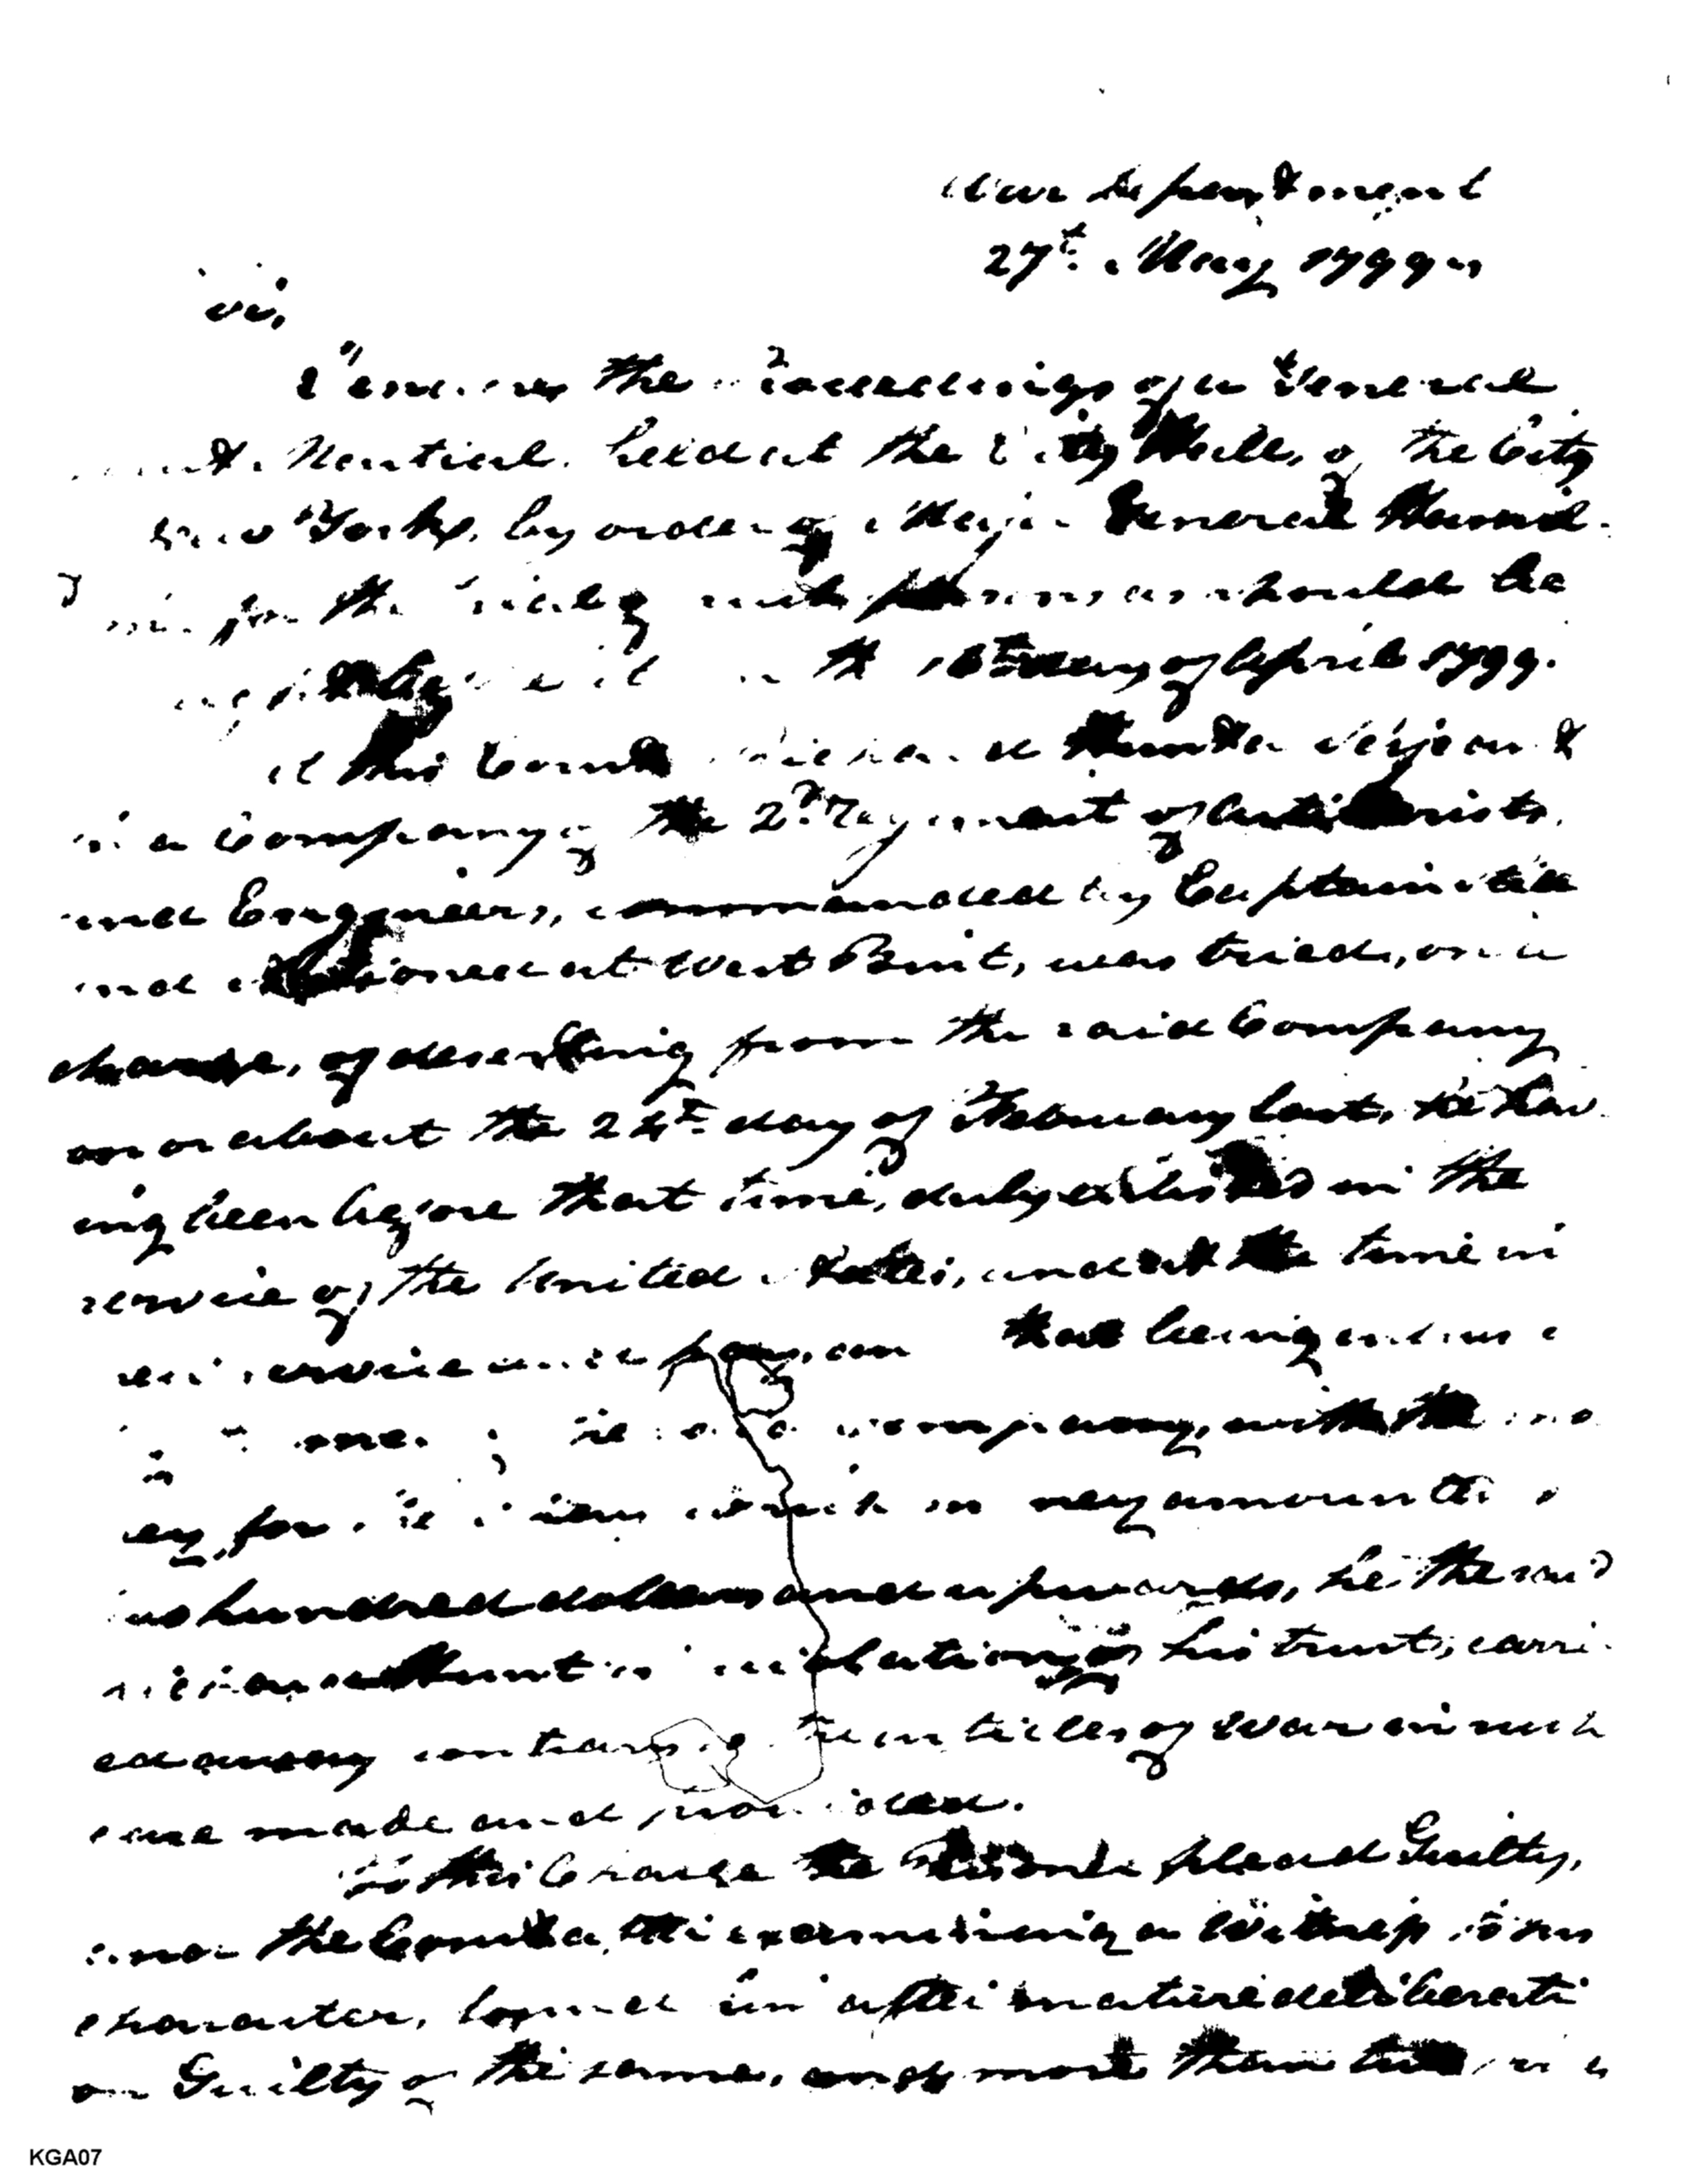 War Department
27th May 1799
Sir,
the Proceedings of a General
Court Martial held at the City Hall, of the City
New York, by order of Major General Hamil-
for the trial of such persons as should be
the 16th day of April 1799.
At this Court Richard Hunter Serjeant
in a Company of the 2d Regiment of Artillerists
and Engineers, commanded by Captain
and stationed at West Point, was tried, on a
charge, of deserting from the said Company
on or about the 24th day of February last, he hav-
ing been before that time, duly enlisted in the
service of the United States, and at the time in
service pay, and that being
the said company, with the mo
ey for which money amounted
hundred dollars and upwards, he the said
Richard Hunter in violation of his trust, carri-
ed away contrary to the articles of War in such
case made and provided.
To this Charge the Prisoner plead Guilty,
and the Court after examining a Witness to his
character, found him after mature deliberati
on Guilty of the same, and more than two
KGA07